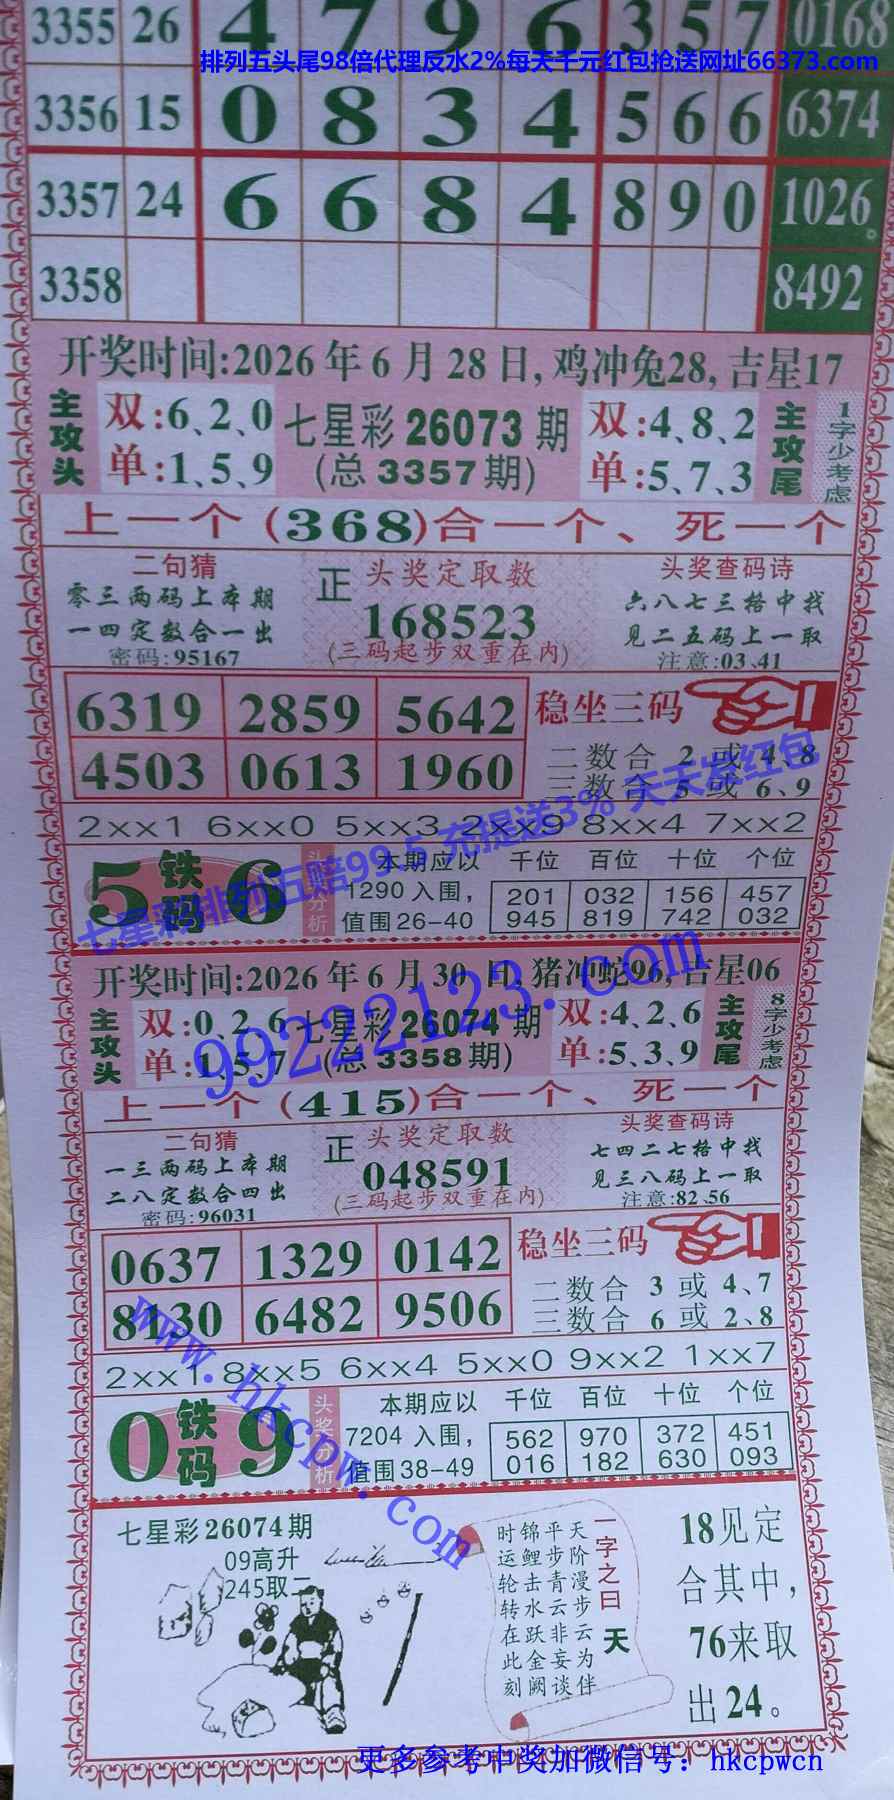 3355 26 4 7 9 6 3 5 7 0168
排列五头尾98倍代理反水2%每天千元红包抢送网址66373.com
3356 15 0 8 3 4 5 6 6 6374
3357 24 6 6 8 4 8 9 0 1026。
3358 8492
开奖时间:2026年6月28日,鸡冲兔28,吉星17
主攻头 双:6、2、0 七星彩26073期 双:4、8、2 主攻尾 1字少考虑
单:1、5、9 (总3357期) 单:5、7、3
上一个(368)合一个、死一个
二句猜 正 头奖定取数 头奖查码诗
零三两码上本期 168523 六八七三格中找
一四定数合一出 (三码起步双重在内) 见二五码上一取
密码:95167 注意:03、41
6319 2859 5642 稳坐三码
4503 0613 1960 二数合 2 或 4、8
三数合 5 或 6、9
七星彩排列五赔99.5 充提送3% 天天发红包
2xx1 6xx0 5xx3 2xx9 8xx4 7xx2
5 铁码 6 头奖分析 本期应以 千位 百位 十位 个位
1290入围, 201 032 156 457
值围26-40 945 819 742 032
开奖时间:2026年6月30日,猪冲蛇96,吉星06
99222123.com
主攻头 双:0、2、6 七星彩26074期 双:4、2、6 主攻尾 8字少考虑
单:1、5、7 (总3358期) 单:5、3、9
上一个(415)合一个、死一个
二句猜 正 头奖定取数 头奖查码诗
一三两码上本期 048591 七四二七格中找
二八定数合四出 (三码起步双重在内) 见三八码上一取
密码:96031 注意:82、56
0637 1329 0142 稳坐三码
8130 6482 9506 二数合 3 或 4、7
三数合 6 或 2、8
www.hkcpw.com
2xx1 8xx5 6xx4 5xx0 9xx2 1xx7
0 铁码 9 头奖分析 本期应以 千位 百位 十位 个位
7204入围, 562 970 372 451
值围38-49 016 182 630 093
七星彩26074期
09高升
245取二
一字之曰 天
天阶漫步云为伴
平步青云非妄谈
锦鲤击水跃金阙
时运轮转在此刻
18见定
合其中,
76来取
出24。
更多参考中奖加微信号：hkcpwcn